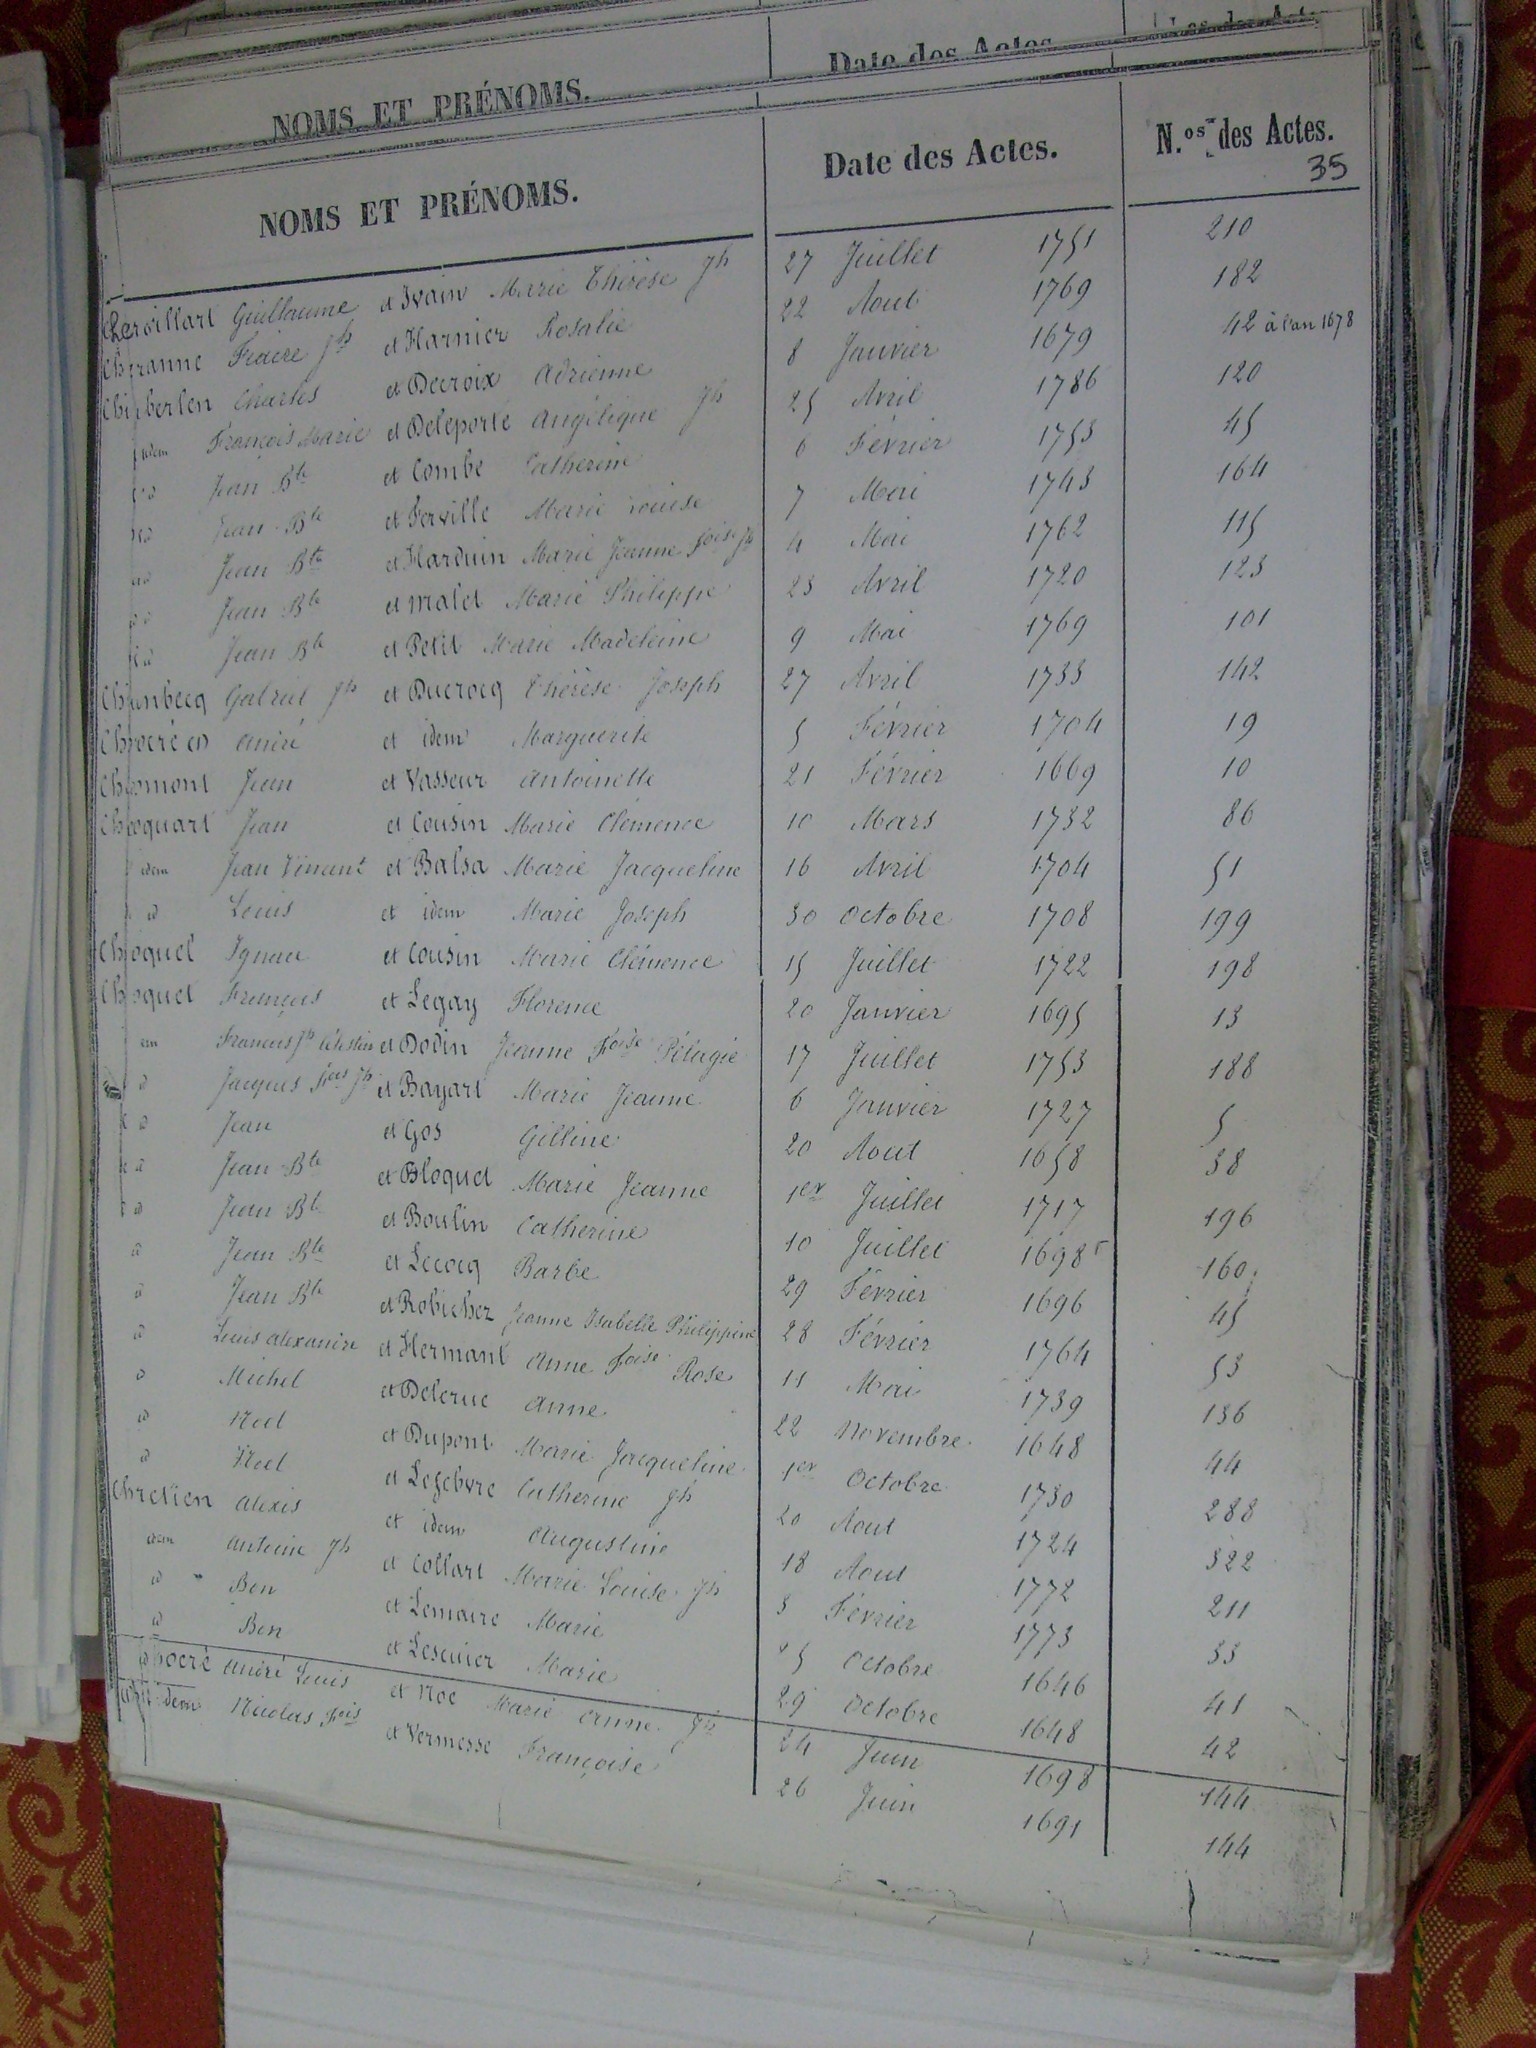 Date des Actes
NOMS ET PRÉNOMS.
NOMS ET PRÉNOMS. Date des Actes. N.os des Actes.
35
Guillaume et Ivain Marie Thérèse Jh 27 Juillet 1751 210
Jh et Harnier Rosalie 22 Aout 1769 182
Charles et Decroix Adrienne 8 Janvier 1679 42 à l'an 1678
idem François Marie et Deleporte Angélique Jh 25 Avril 1786 120
id Jean Bte et Combe Catherine 6 Février 1753 45
id Jean Bte et Ferville Marie Louise 7 Mai 1743 164
id Jean Bte et Harduin Marie Jeanne foise Jh 4 Mai 1762 115
id Jean Bte et Malet Marie Philippe 23 Avril 1720 123
id Jean Bte et Petit Marie Madeleine 9 Mai 1769 101
Gabriel Jh et Ducrocq Thérèse Joseph 27 Avril 1733 142
André et idem Marguerite 5 Février 1704 19
Jean et Vasseur Antoinette 21 Février 1669 10
Choquart Jean et Cousin Marie Clémence 10 Mars 1732 86
idem Jean Vincent et Balsa Marie Jacqueline 16 Avril 1704 51
id Louis et idem Marie Joseph 30 Octobre 1708 199
Choquel Ignace et Cousin Marie Clémence 15 Juillet 1722 198
Choquet François et Legay Florence 20 Janvier 1695 13
François Jh Célestin et Dodin Jeanne foise Pélagie 17 Juillet 1753 188
id Jacques fois Jh et Bayart Marie Jeanne 6 Janvier 1727 5
id Jean et Gos Gilline 20 Aout 1658 38
id Jean Bte et Bloquel Marie Jeanne 1er Juillet 1717 196
id Jean Bte et Boulin Catherine 10 Juillet 1698 160
id Jean Bte et Lecocq Barbe 29 Février 1696 45
id Jean Bte et Robichez Jeanne Isabelle Philippine 28 Février 1764 53
id Louis Alexandre et Hermant Anne foise Rose 11 Mai 1739 136
id Michel et Delerue Anne 22 Novembre 1648 44
id Noel et Dupont Marie Jacqueline 1er Octobre 1730 288
id Noel et Lefebvre Catherine Jh 20 Aout 1724 322
Chretien Alexis et idem Augustine 18 Aout 1772 211
idem Antoine Jh et Collart Marie Louise Jh 3 Février 1773 33
id Bon et Lemaire Marie 5 Octobre 1646 41
id Bon et Lescuier Marie 29 Octobre 1648 42
Chocré André Louis et Noe Marie Anne Jh 24 Juin 1698 144
idem Nicolas fois et Vermesse Françoise 26 Juin 1691 144